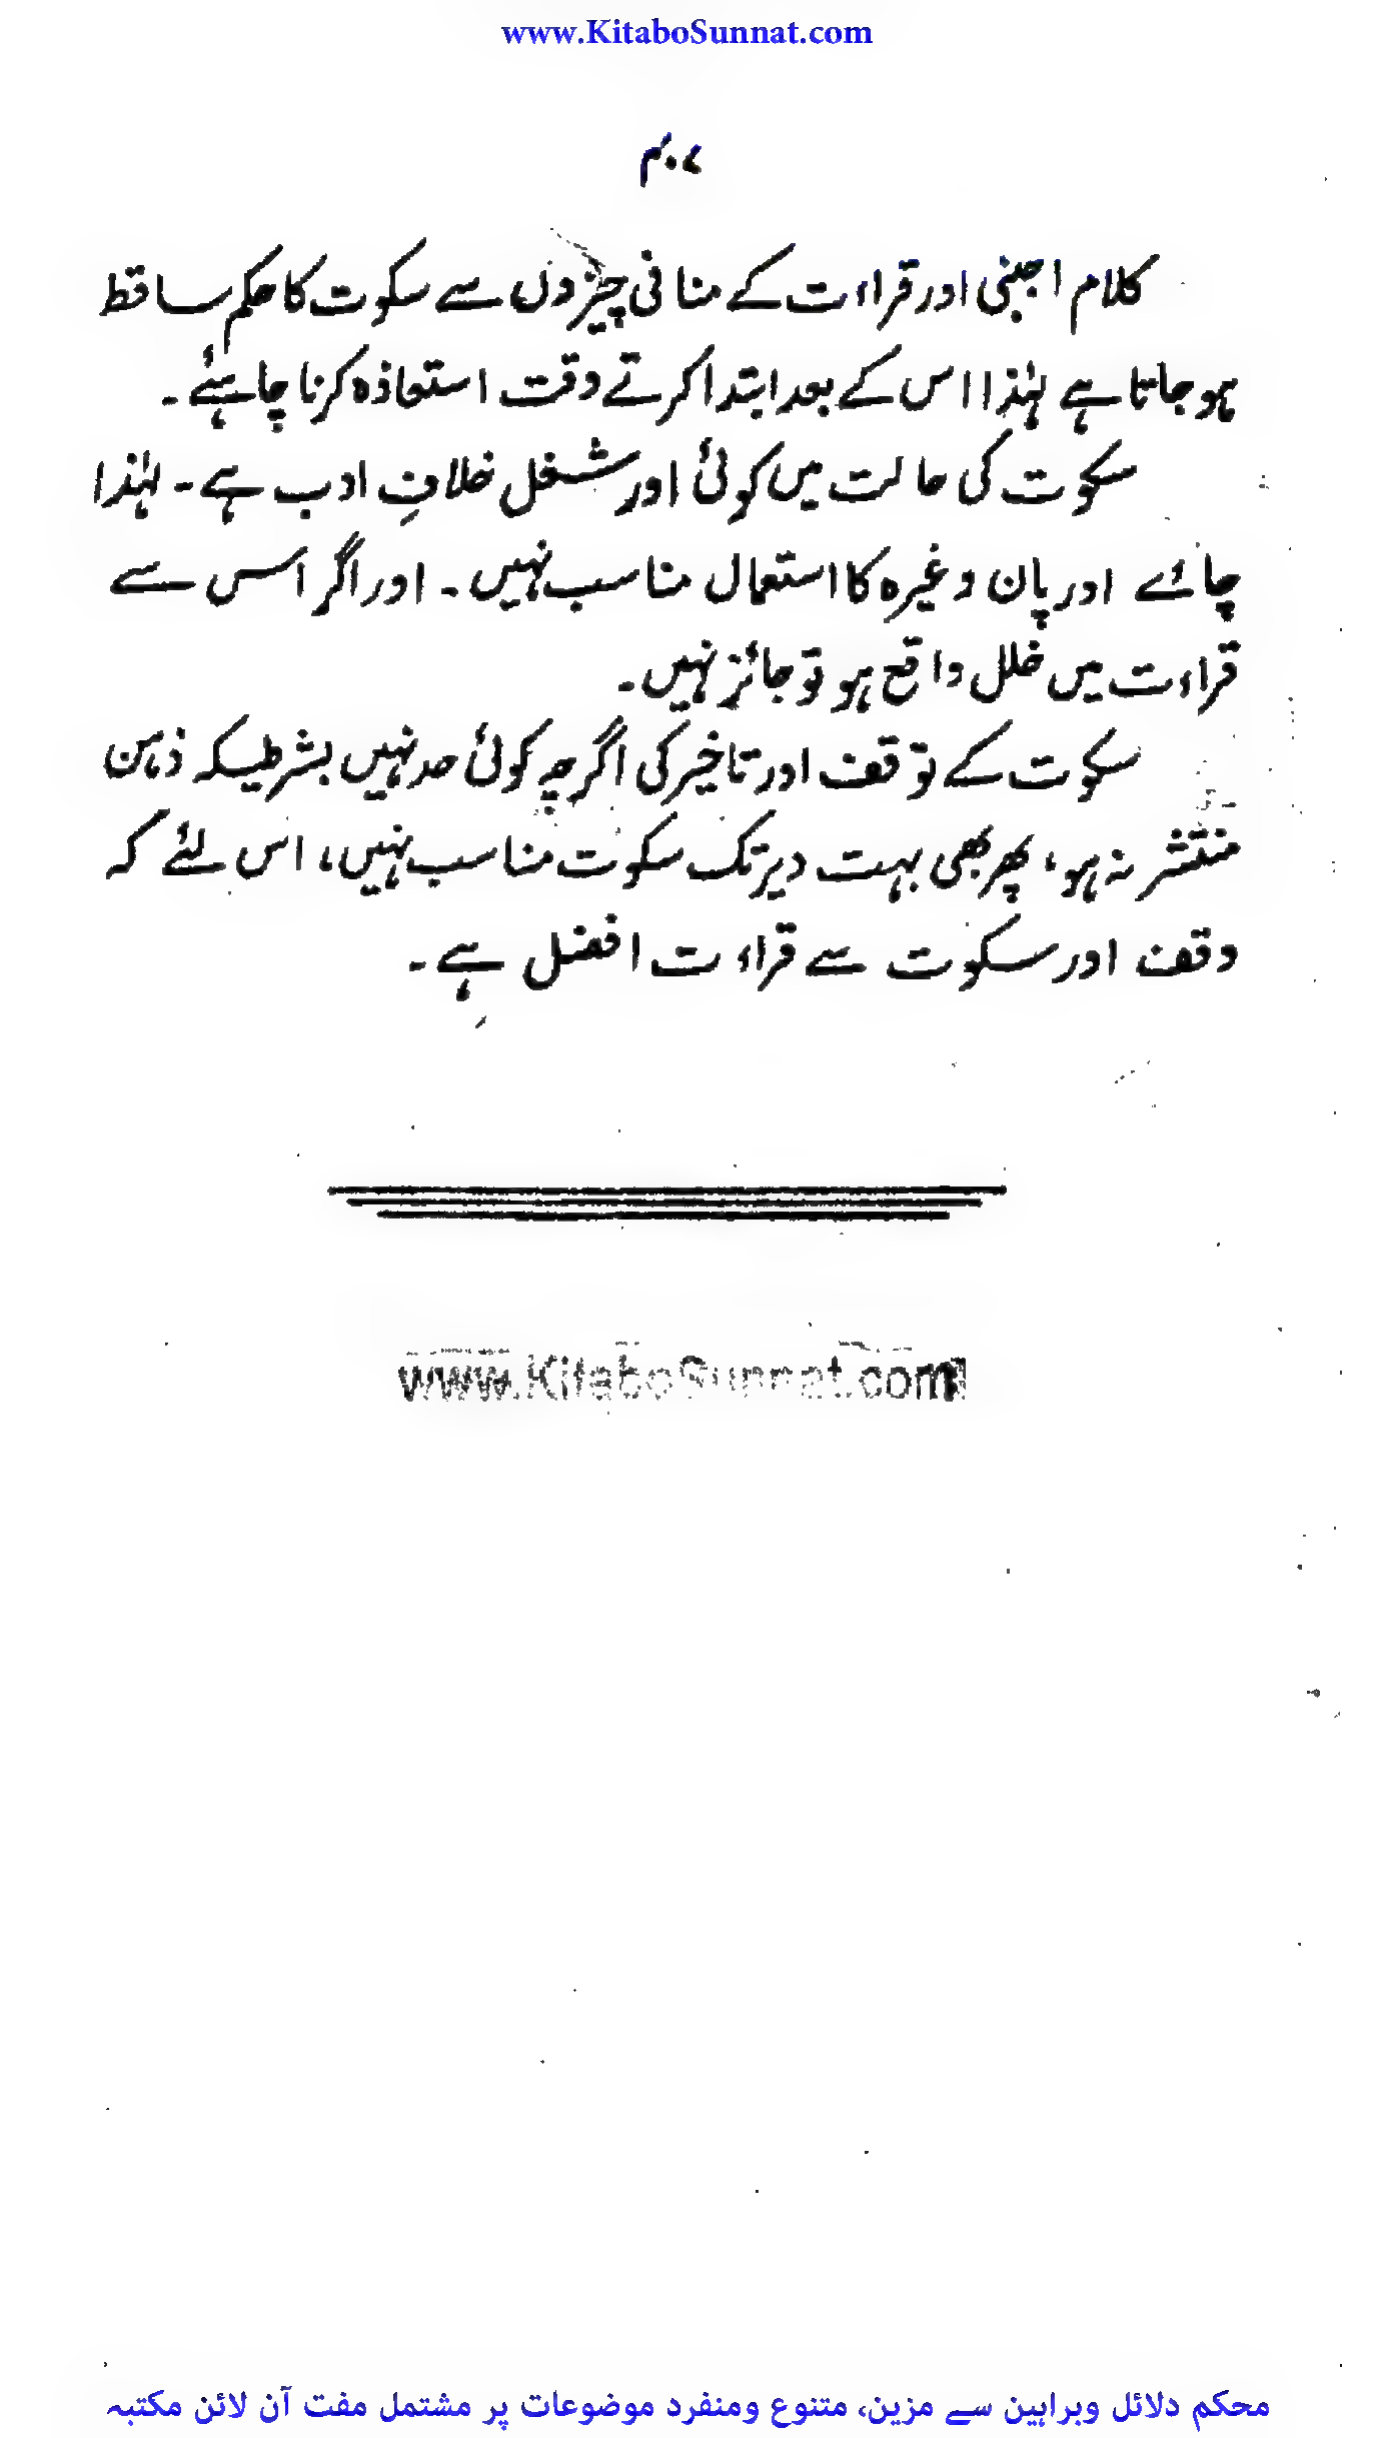 www.KitaboSunnat.com
۴۰۷
کلام اجنبی اور قراءت کے منافی چیزوں سے سکوت کا حکم ساقط
ہوجاتا ہے لہٰذا اس کے بعد ابتدا کرتے وقت استعاذہ کرنا چاہئے۔
سکوت کی حالت میں کوئی اور شغل خلافِ ادب ہے۔ لہٰذا
چائے اور پان وغیرہ کا استعمال مناسب نہیں۔ اور اگر اس سے
قراءت میں خلل واقع ہو تو جائز نہیں۔
سکوت کے توقف اور تاخیر کی اگرچہ کوئی حد نہیں بشرطیکہ ذہن
منتشر نہ ہو، پھر بھی بہت دیر تک سکوت مناسب نہیں، اس لئے کہ
وقف اور سکوت سے قراءت افضل ہے۔
www.KitaboSunnat.com
محکم دلائل وبراہین سے مزین، متنوع ومنفرد موضوعات پر مشتمل مفت آن لائن مکتبہ